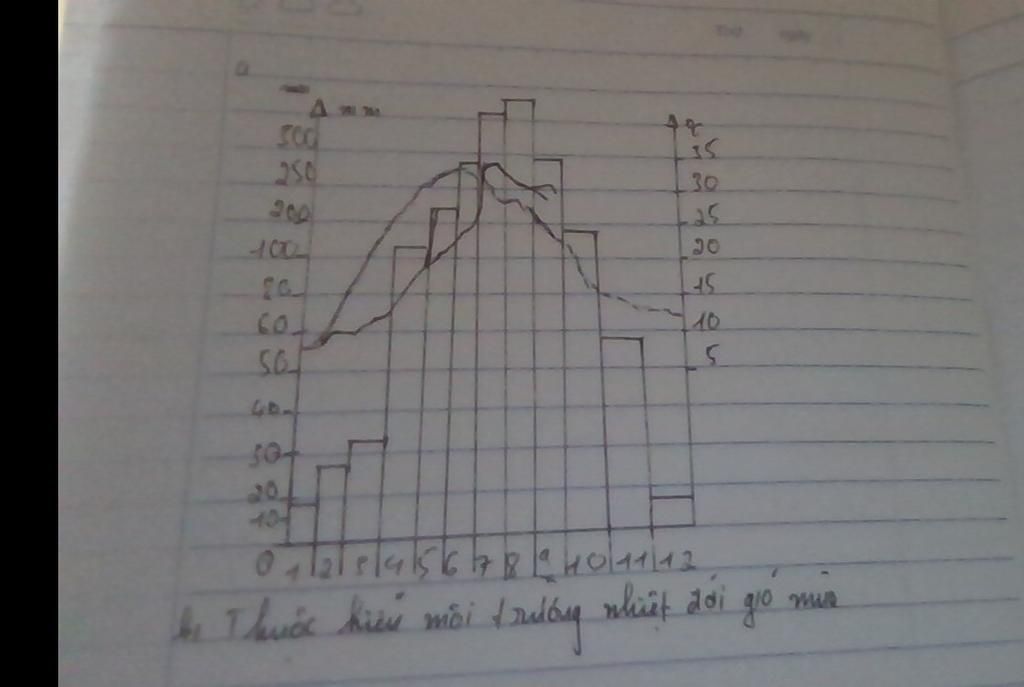 a
mm
°C
300
35
250
30
200
25
100
20
80
15
60
10
50
5
40
30
20
10
0 1 2 3 4 5 6 7 8 9 10 11 12
b, Thuộc kiểu môi trường nhiệt đới gió mùa